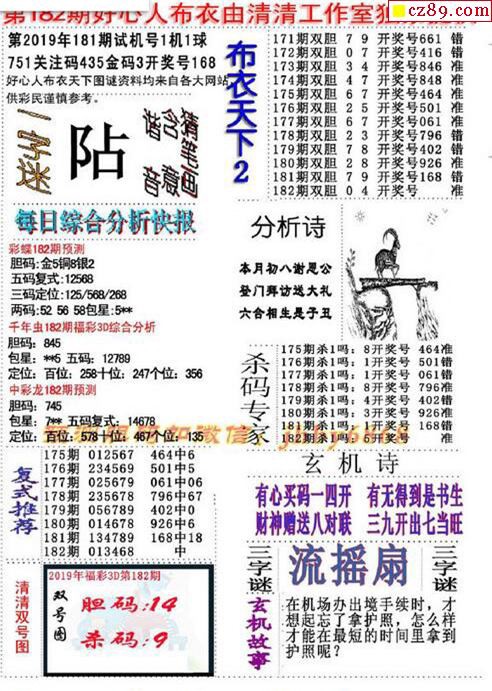 cz89.com
第182期好心人布衣由清清工作室
第2019年181期试机号1机1球
751关注码435金码3开奖号168
好心人布衣天下图谜资料均来自各大网站
供彩民谨慎参考。
一字迷
阽
猜笔画
含意
谐音
布衣天下2
171期双胆 7 9 开奖号661 错
172期双胆 0 7 开奖号416 错
173期双胆 3 4 开奖号846 准
174期双胆 6 7 开奖号067 准
175期双胆 4 7 开奖号464 准
176期双胆 0 4 开奖号501 准
177期双胆 2 5 开奖号061 错
178期双胆 2 3 开奖号796 错
179期双胆 7 8 开奖号402 错
180期双胆 4 8 开奖号926 错
181期双胆 7 9 开奖号168 错
182期双胆 0 4 开奖号 准
每日综合分析快报
彩蝶182期预测
胆码:金5铜8银2
五码复式:12568
三码定位:125/568/268
两码:52 56 58包星:5**
千年虫182期福彩3D综合分析
胆码: 845
包星: **5 五码: 12789
定位: 百位: 258十位: 247个位: 356
中彩龙182期预测
胆码: 745
包星: 7** 五码复式: 14678
定位: 百位: 578十位: 467个位: 135
分析诗
本月初八谢恩公
登门拜访送大礼
六合相生是子丑
杀码专家
175期杀1吗: 8开奖号 464准
176期杀1吗: 1开奖号 501错
177期杀1吗: 1开奖号 061错
178期杀1吗: 8开奖号 796准
179期杀1吗: 4开奖号 402错
180期杀1吗: 3开奖号 926准
181期杀1吗: 9开奖号 168准
182期杀1吗: 5开奖号 准
复式推荐
175期 012567 464中6
176期 234569 501中5
177期 025679 061中06
178期 235678 796中67
179期 056789 402中0
180期 014678 926中6
181期 134789 168中18
182期 013468 中
玄机诗
有心买码一四开 有无得到是书生
财神赠送八对联 三九开出七当旺
三字谜
流摇扇
三字谜
清清双号图
2019年福彩3D第182期
双号图
胆码:14
杀码:9
玄机故事
在机场办出境手续时,才
想起忘了拿护照,怎么样
才能在最短的时间里拿到
护照呢?